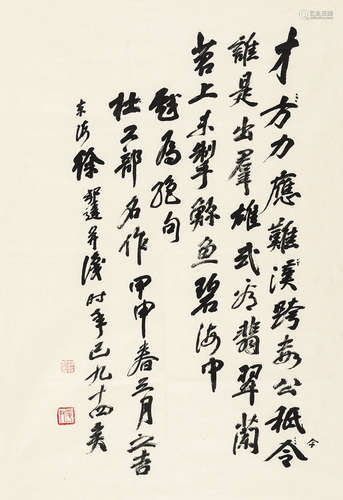 才方力應難漢跨數公秪今
誰是出羣雄或看翡翠蘭
苕上未掣鯨魚碧海中
戲為絕句
杜工部名作 甲申春三月之吉
東海徐 時年已九十四矣
今